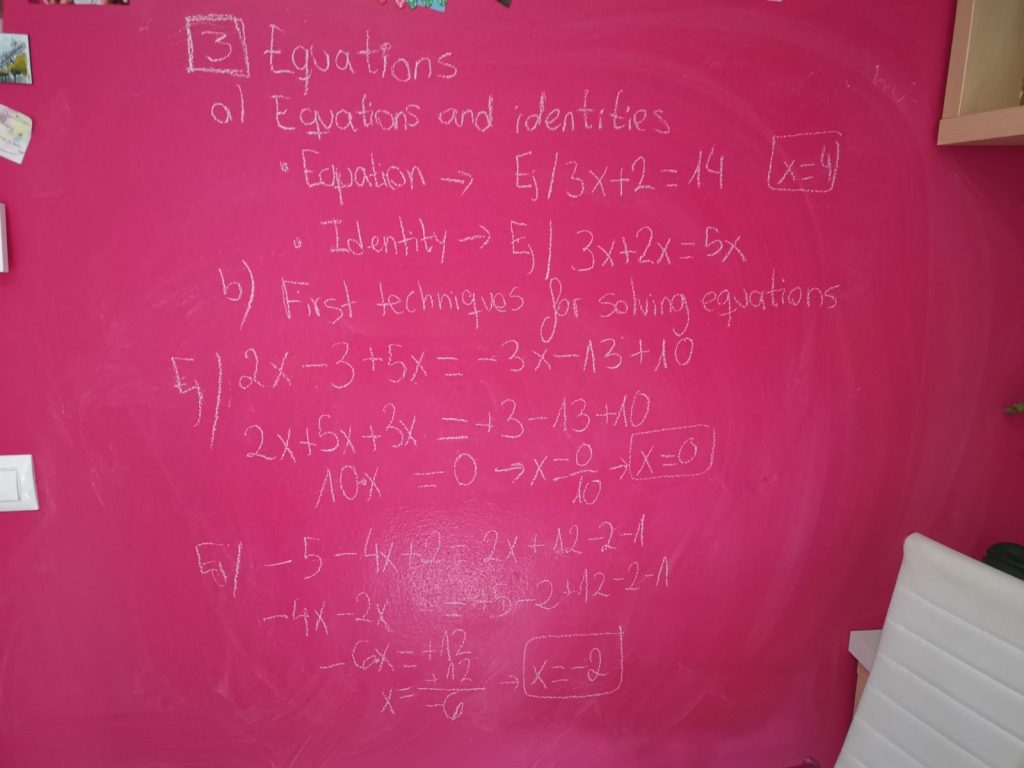 3 Equations
a) Equations and identities
· Equation → Ej/ 3x+2=14 x=4
· Identity → Ej/ 3x+2x=5x
b) First techniques for solving equations
Ej/ 2x-3+5x=-3x-13+10
2x+5x+3x=+3-13+10
10x=0 → x=0/10 → x=0
Ej/ -5-4x+2=2x+12-2-1
-4x-2x=+5-2+12-2-1
-6x=+12
x=+12/-6 → x=-2